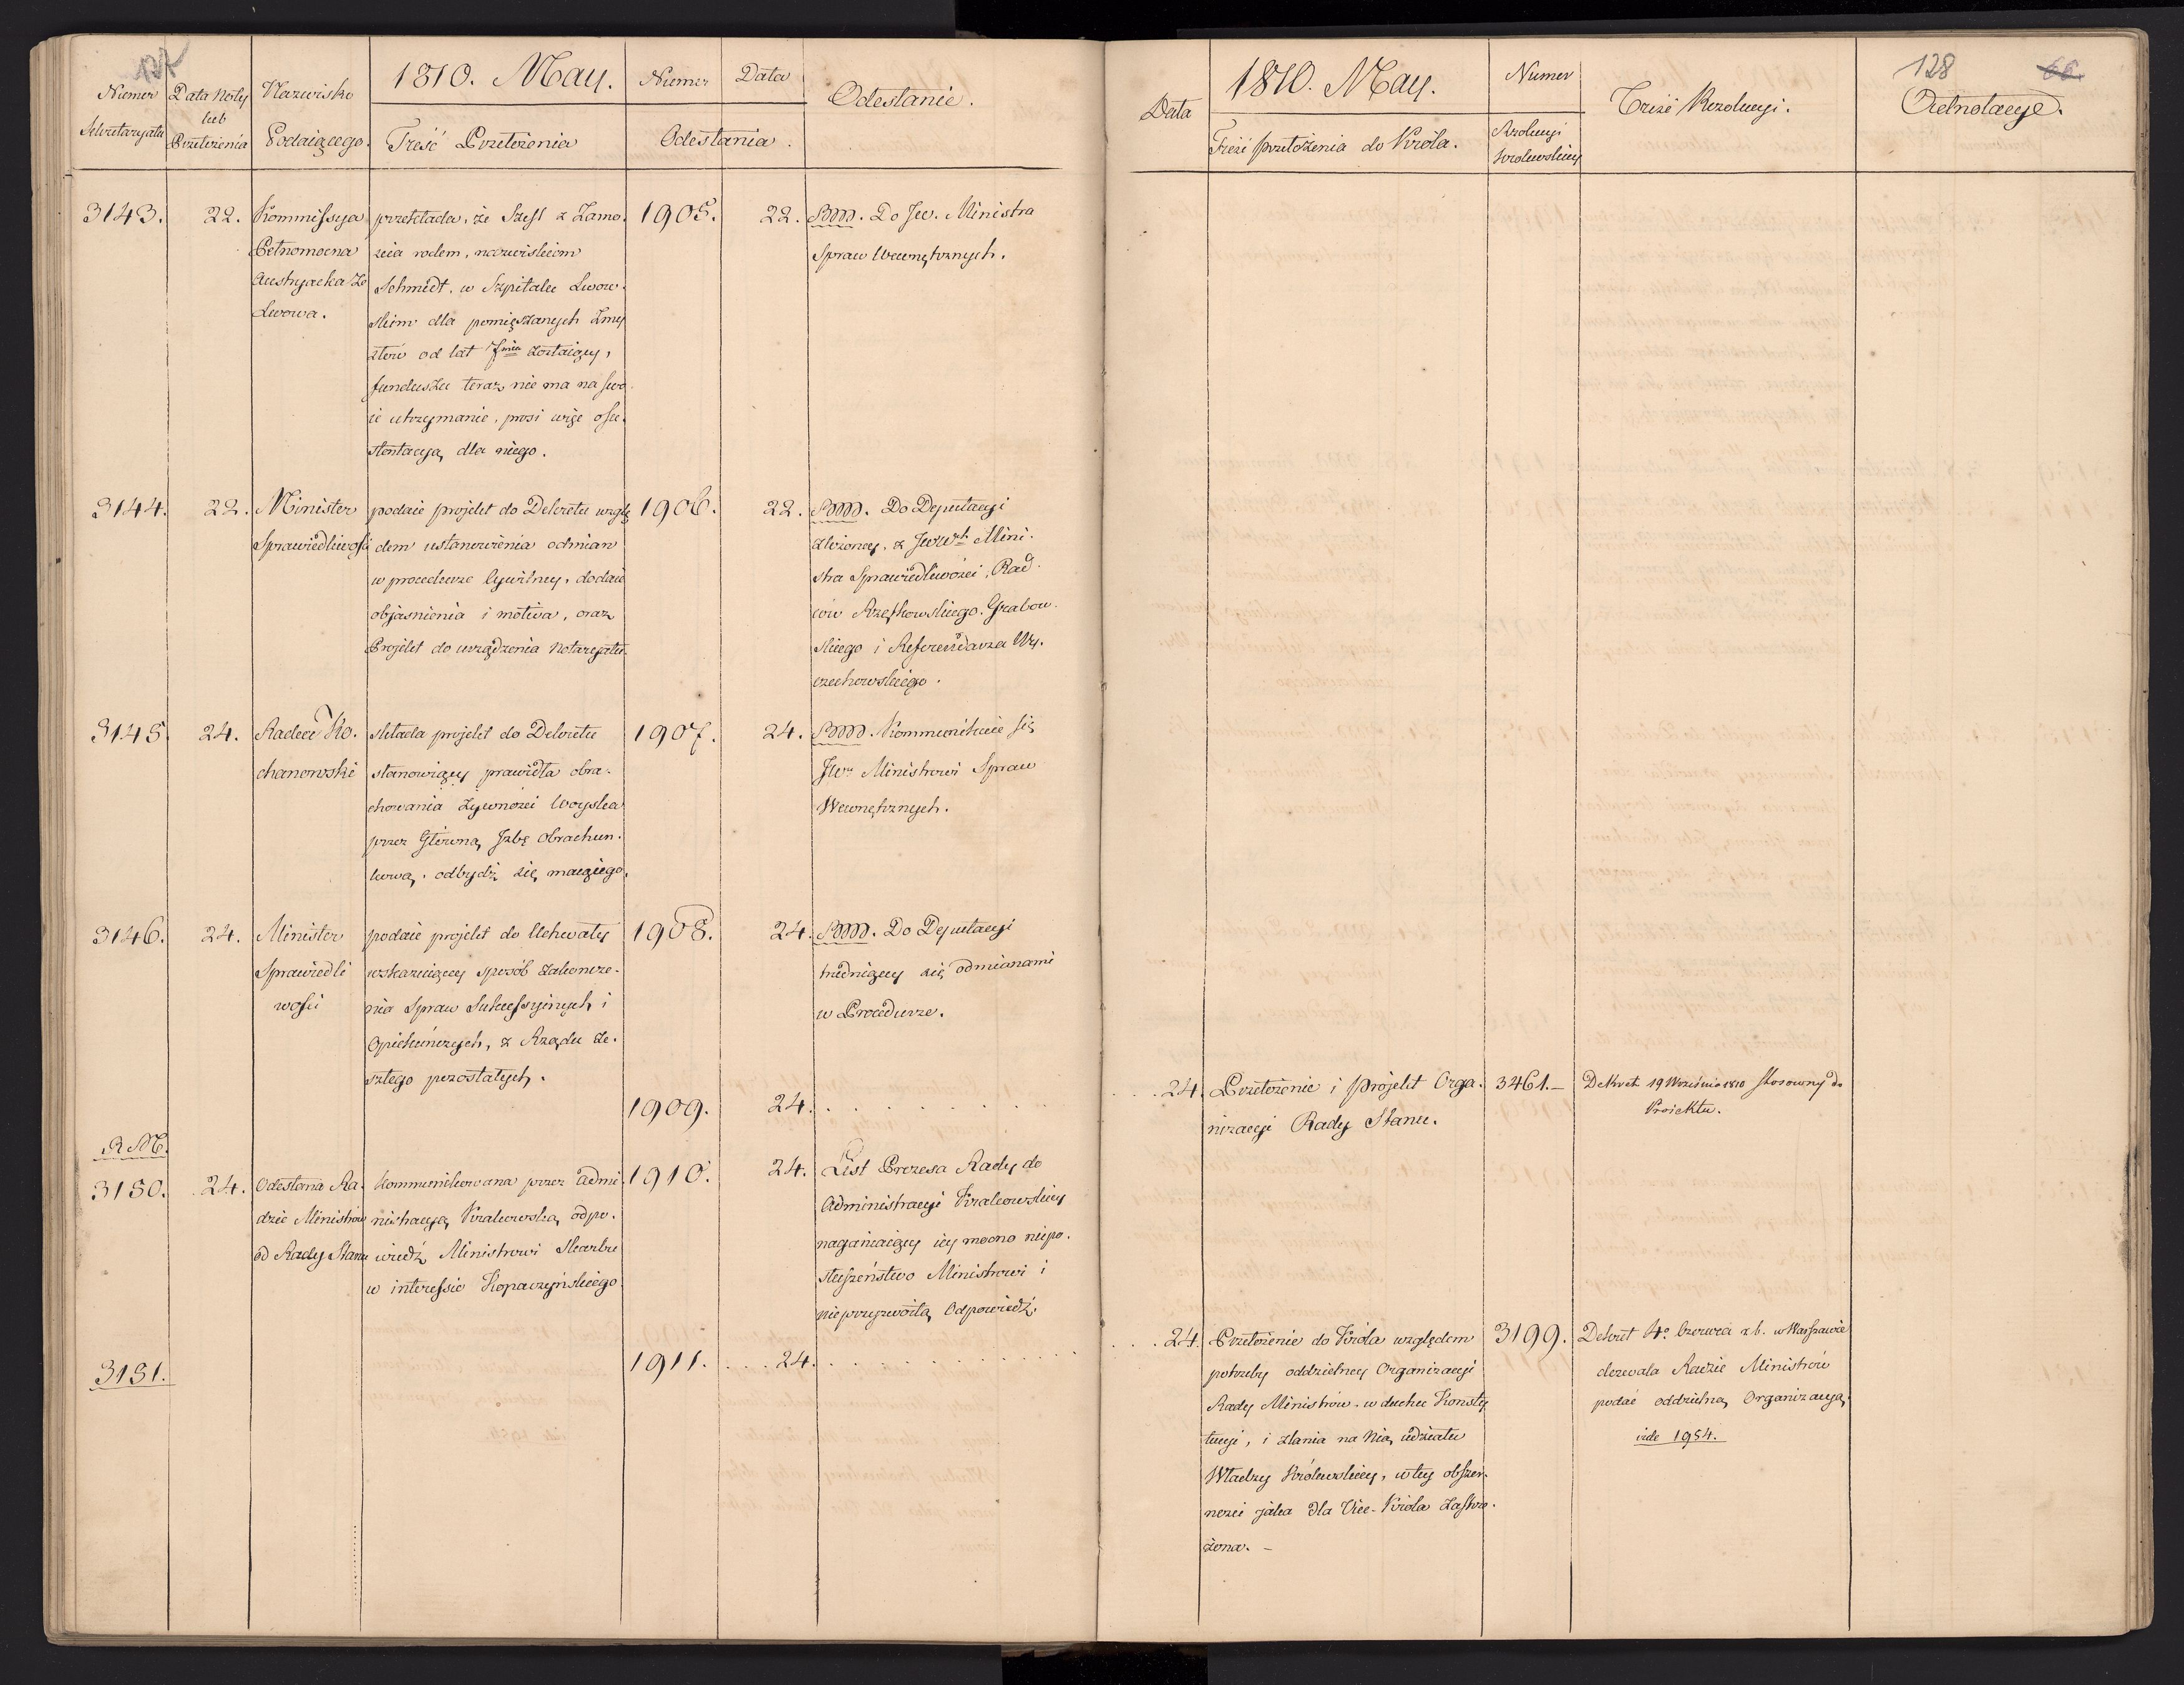 127
Numer
Sekretaryatu
Data Noty
lub
Przełożenia
Nazwisko
Podaiącego.
1810. May.
Treść Przełożenia
Numer
Data
Odesłania.
Odesłanie.
3143.
22.
Kommissya
Pełnomocna
Austryacka ze
Lwowa.
przekłada, że Szesl z Zamo-
scia rodem, nazwiskiem
Schmidt, w Szpitalu Lwow-
skim dla pomięszanych Zmy
słow od lat 7miu zostaiący,
funduszu teraz nie ma na swo-
ie utrzymanie, prosi więc o su-
stentacyą dla niego.
1905.
22.
RM. Do JW. Ministra
Spraw Wewnętrznych.
3144.
22.
Minister
Sprawiedliwości
podaie projekt do Dekretu wzglę
dem ustanowienia odmian
w procedurze Cywilney, dodaie
objasnienia i motiva, oraz
Projekt do urządzenia Notaryatu.
1906.
22.
RM. Do Deputacyi
złożoney, z JWW. Mini-
stra Sprawiedliwości, Rad-
ców Rzętkowskiego. Grabow-
skiego i Referendarza Wy-
czechowskiego.
3145.
24.
Radca Ko-
chanowski
składa projekt do Dekretu
stanowiący prawidła obra-
chowania Żywności Woyska
przez Główną Jzbę Obrachun-
kową, odbydź się maiącego.
1907.
24.
RM. Kommunikuie się
JW. Ministrowi Spraw
Wewnętrznych.
3146.
24.
Minister
Sprawiedli
wości
podaie projekt do Uchwały
wskazuiącey sposób zakończe-
nia Spraw Sukcessyinych i
Opiekuńczych, z Rządu ze-
szłego pozostałych.
1908.
24.
RM. Do Deputacyi
trudniącey się odmianami
w Procedurze.
1909.
24.
R M.
3150.
24.
Odesłana Ra-
dzie Ministrów
od Rady Stanu
kommunikowana przez admi-
nistracyą Krakowską odpo-
wiedź Ministrowi Skarbu
w interessie Kopaczyńskiego
1910.
24.
List Prezesa Rady do
Administracyi Krakowskiey
naganiaiący iey mocno niepo-
słuszeństwo Ministrowi i
nieprzyzwoitą Odpowiedź.
3151.
1911.
24.
128
66.
Data
1810. May.
Treść przełożenia do Króla.
Numer
Rezolucyi
Królewskiey
Treść Rezolucyi.
Adnotacye.
24.
Przełożenie i projekt Orga-
nizacyi Rady Stanu.
3461.—
Dekret 19 Września 1810 stosowny do
Proiektu.
24.
Przełożenie do Króla względem
potrzeby oddzielney Organizacyi
Rady Ministrów w duchu Konsty
tucyi, i zlania na Nią udziału
Władzy Królewskiey, w tey obszer-
ności jaka dla Vice-Króla zastrze-
żona.—
3199.
Dekret 4o Czerwca r.b. w Warszawie
dozwala Radzie Ministrów
podać oddzielną Organizacyą.
vide 1954.